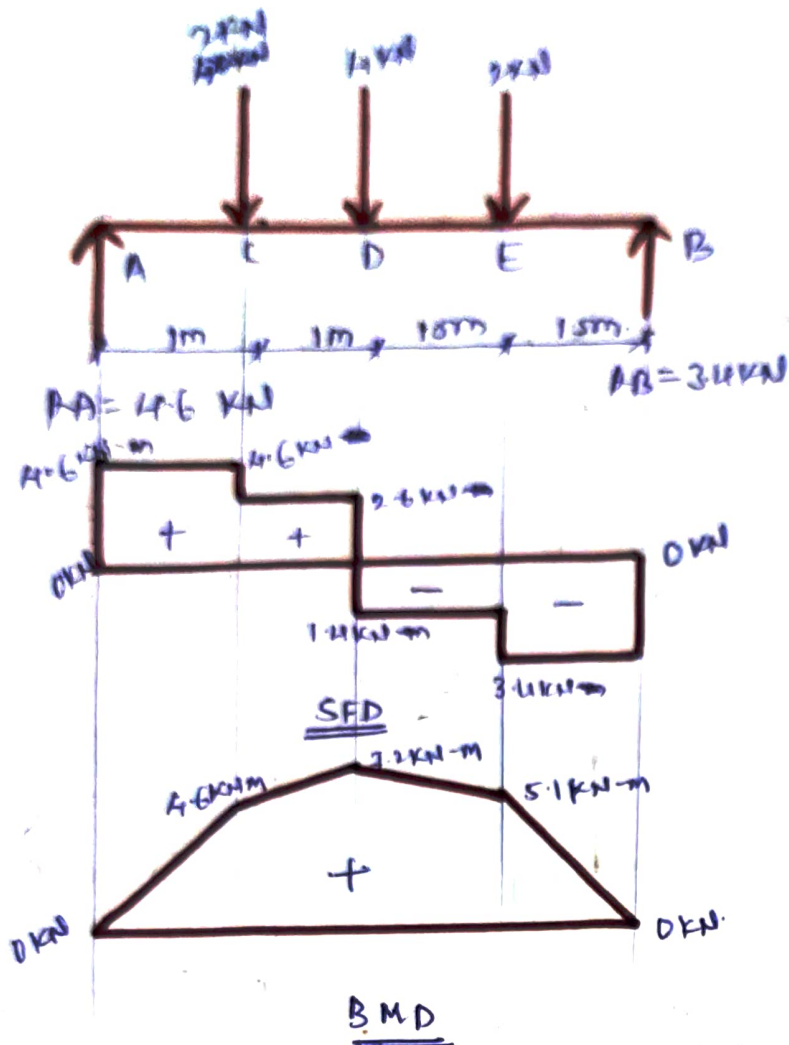 2KN
4KN 2KN
A C D E B
1m 1m 1.5m 1.5m
RA = 4.6 KN
RB = 3.4 KN
4.6 KN-m 4.6 KN
2.6 KN
+ + 0 KN
0 KN
- -
1.4 KN-m
3.4 KN
SFD
7.2 KN-m
4.6 KNm 5.1 KN-m
+
0 KN 0 KN.
BMD